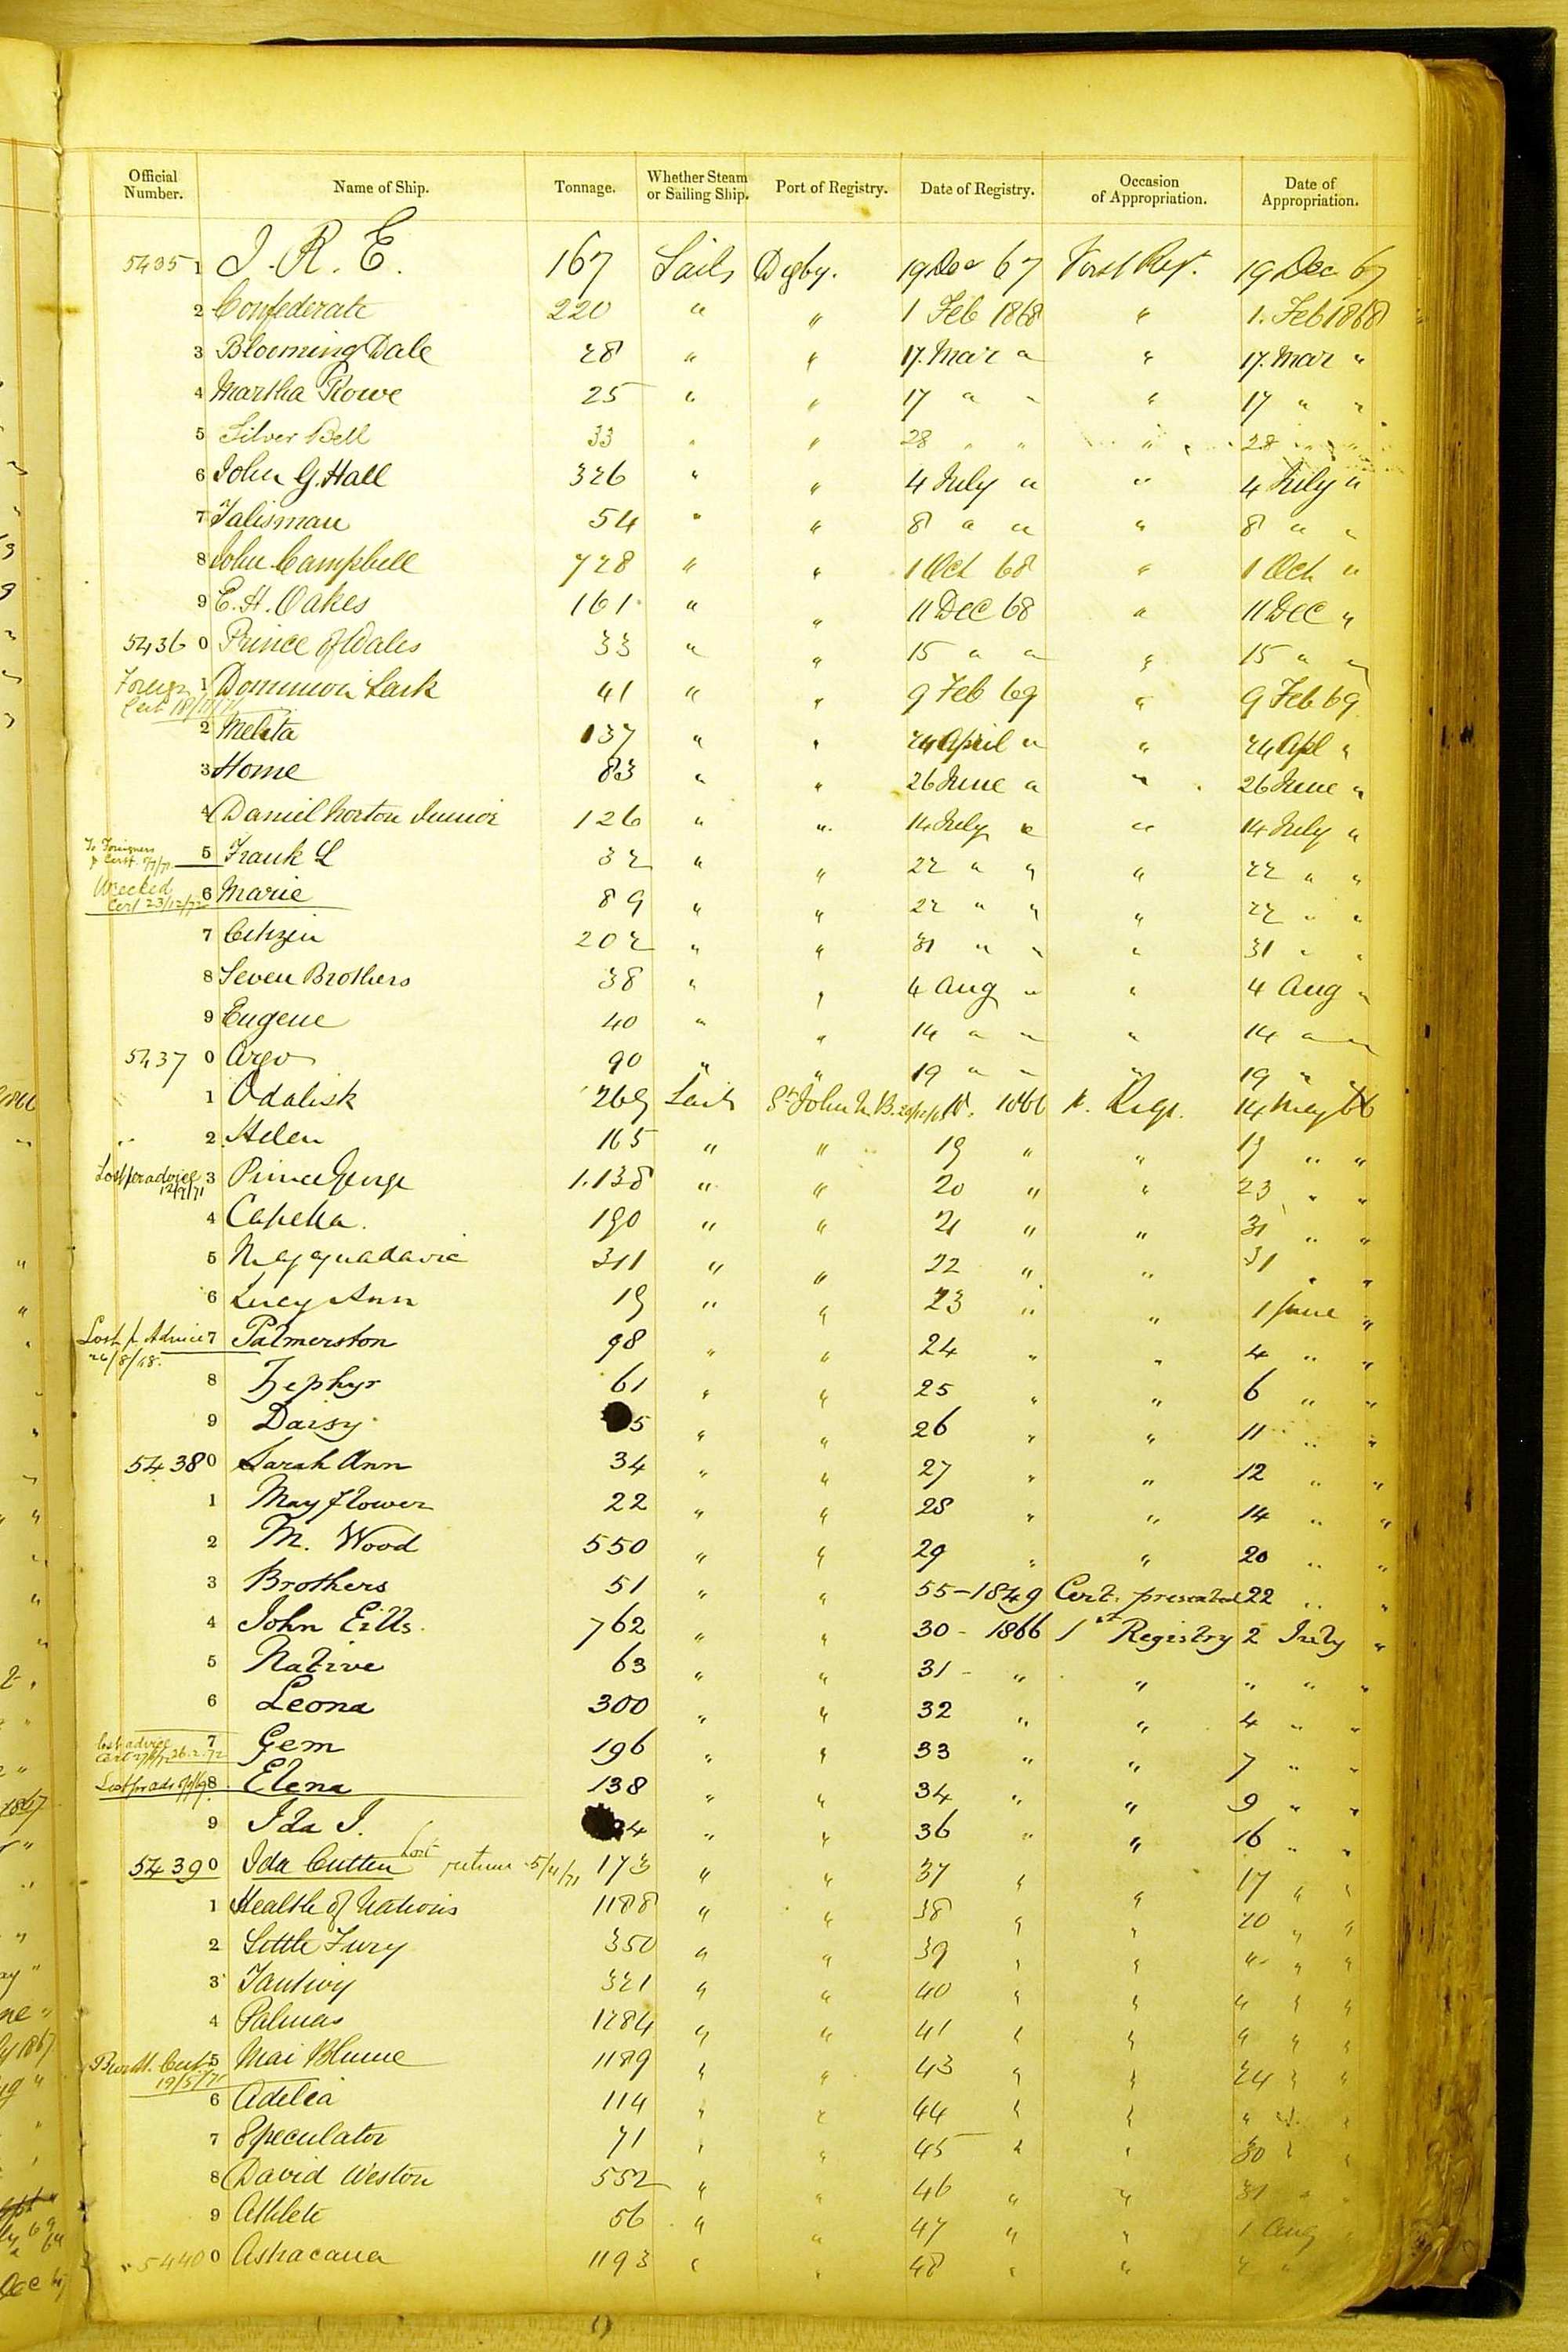 Official Number. Name of Ship. Tonnage. Whether Steam or Sailing Ship. Port of Registry. Date of Registry. Occasion of Appropriation. Date of Appropriation.
5435 1 J. R. E. 167 Sails Digby. 19 Dec 67 First Reg. 19 Dec 67
2 Confederate 220 " " 1 Feb 1868 " 1. Feb 1868
3 Blooming Dale 28 " " 17. Mar " " 17. Mar "
4 Martha Rowe 25 " " 17 " " " 17 " "
5 Silver Bell 33 " " 28 " " " 28 " "
6 John G. Hall 326 " " 4 July " " 4 July "
7 Talisman 54 " " 8 " " " 8 " "
8 John Campbell 728 " " 1 Oct 68 " 1 Oct "
9 E. H. Oakes 161 " " 11 Dec 68 " 11 Dec "
5436 0 Prince of Wales 33 " " 15 " " " 15 " "
Foreign Cert 1 Dominion Lark 41 " " 9 Feb 69 " 9 Feb 69
2 Melita 137 " " 24 April " " 24 Apl "
3 Home 83 " " 26 June " " 26 June "
4 Daniel Norton Junior 126 " " 14 July " " 14 July "
To Foreigners p Cert. 5 Frank L 32 " " 22 " " " 22 " "
Wrecked Cert 23/12/72 6 Marie 89 " " 22 " " " 22 " "
7 Citizen 202 " " 31 " " " 31 " "
8 Seven Brothers 38 " " 4 Aug " " 4 Aug "
9 Eugene 40 " " 14 " " " 14 " "
5437 0 Argo 90 " " 19 " " " 19 "
1 Odalisk 269 Sails St John N. B. 18. 1866 1. Regr. 14 May 66
2 Helen 165 " " 19 " " 19 " "
Lost per advice 12/7/71 3 Prince George 1.138 " " 20 " " 23 " "
4 Capella. 190 " " 21 " " 31 " "
5 Magaguadavic 311 " " 22 " " 31 " "
6 Lucy Ann 19 " " 23 " " 1 June "
Lost p. Advice 26/8/68. 7 Palmerston 98 " " 24 " " 4 " "
8 Zephyr 61 " " 25 " " 6 " "
9 Daisy 5 " " 26 " " 11 " "
5438 0 Sarah Ann 34 " " 27 " " 12 " "
1 May flower 22 " " 28 " " 14 " "
2 M. Wood 550 " " 29 " " 20 " "
3 Brothers 51 " " 55-1849 Cert. presented 22 " "
4 John Eills. 762 " " 30 - 1866 1st Registry 2 July "
5 Native 63 " " 31 - " " " " "
6 Leona 300 " " 32 " " 4 " "
Lost advice Cert 26.2.72 7 Gem 196 " " 33 " " 7 " "
Lost pr adv 8 Elena 138 " " 34 " " 9 " "
9 Ida I. 34 " " 36 " " 16 " "
5439 0 Ida Cutten Lost return 5/11/71 173 " " 37 " " 17 " "
1 Health of Nations 1188 " " 38 " " 20 " "
2 Little Fury 350 " " 39 " " " " "
3 Tantivy 321 " " 40 " " " " "
4 Palmas 1284 " " 41 " " " " "
Burnt. Cert 19/5/71 5 Mai Blume 1189 " " 43 " " 24 " "
6 Adelia 114 " " 44 " " " " "
7 Speculator 71 " " 45 " " 30 " "
8 David Weston 552 " " 46 " " 31 " "
9 Athlete 56 " " 47 " " 1 Aug "
5440 0 Ashacana 1193 " " 48 " " "